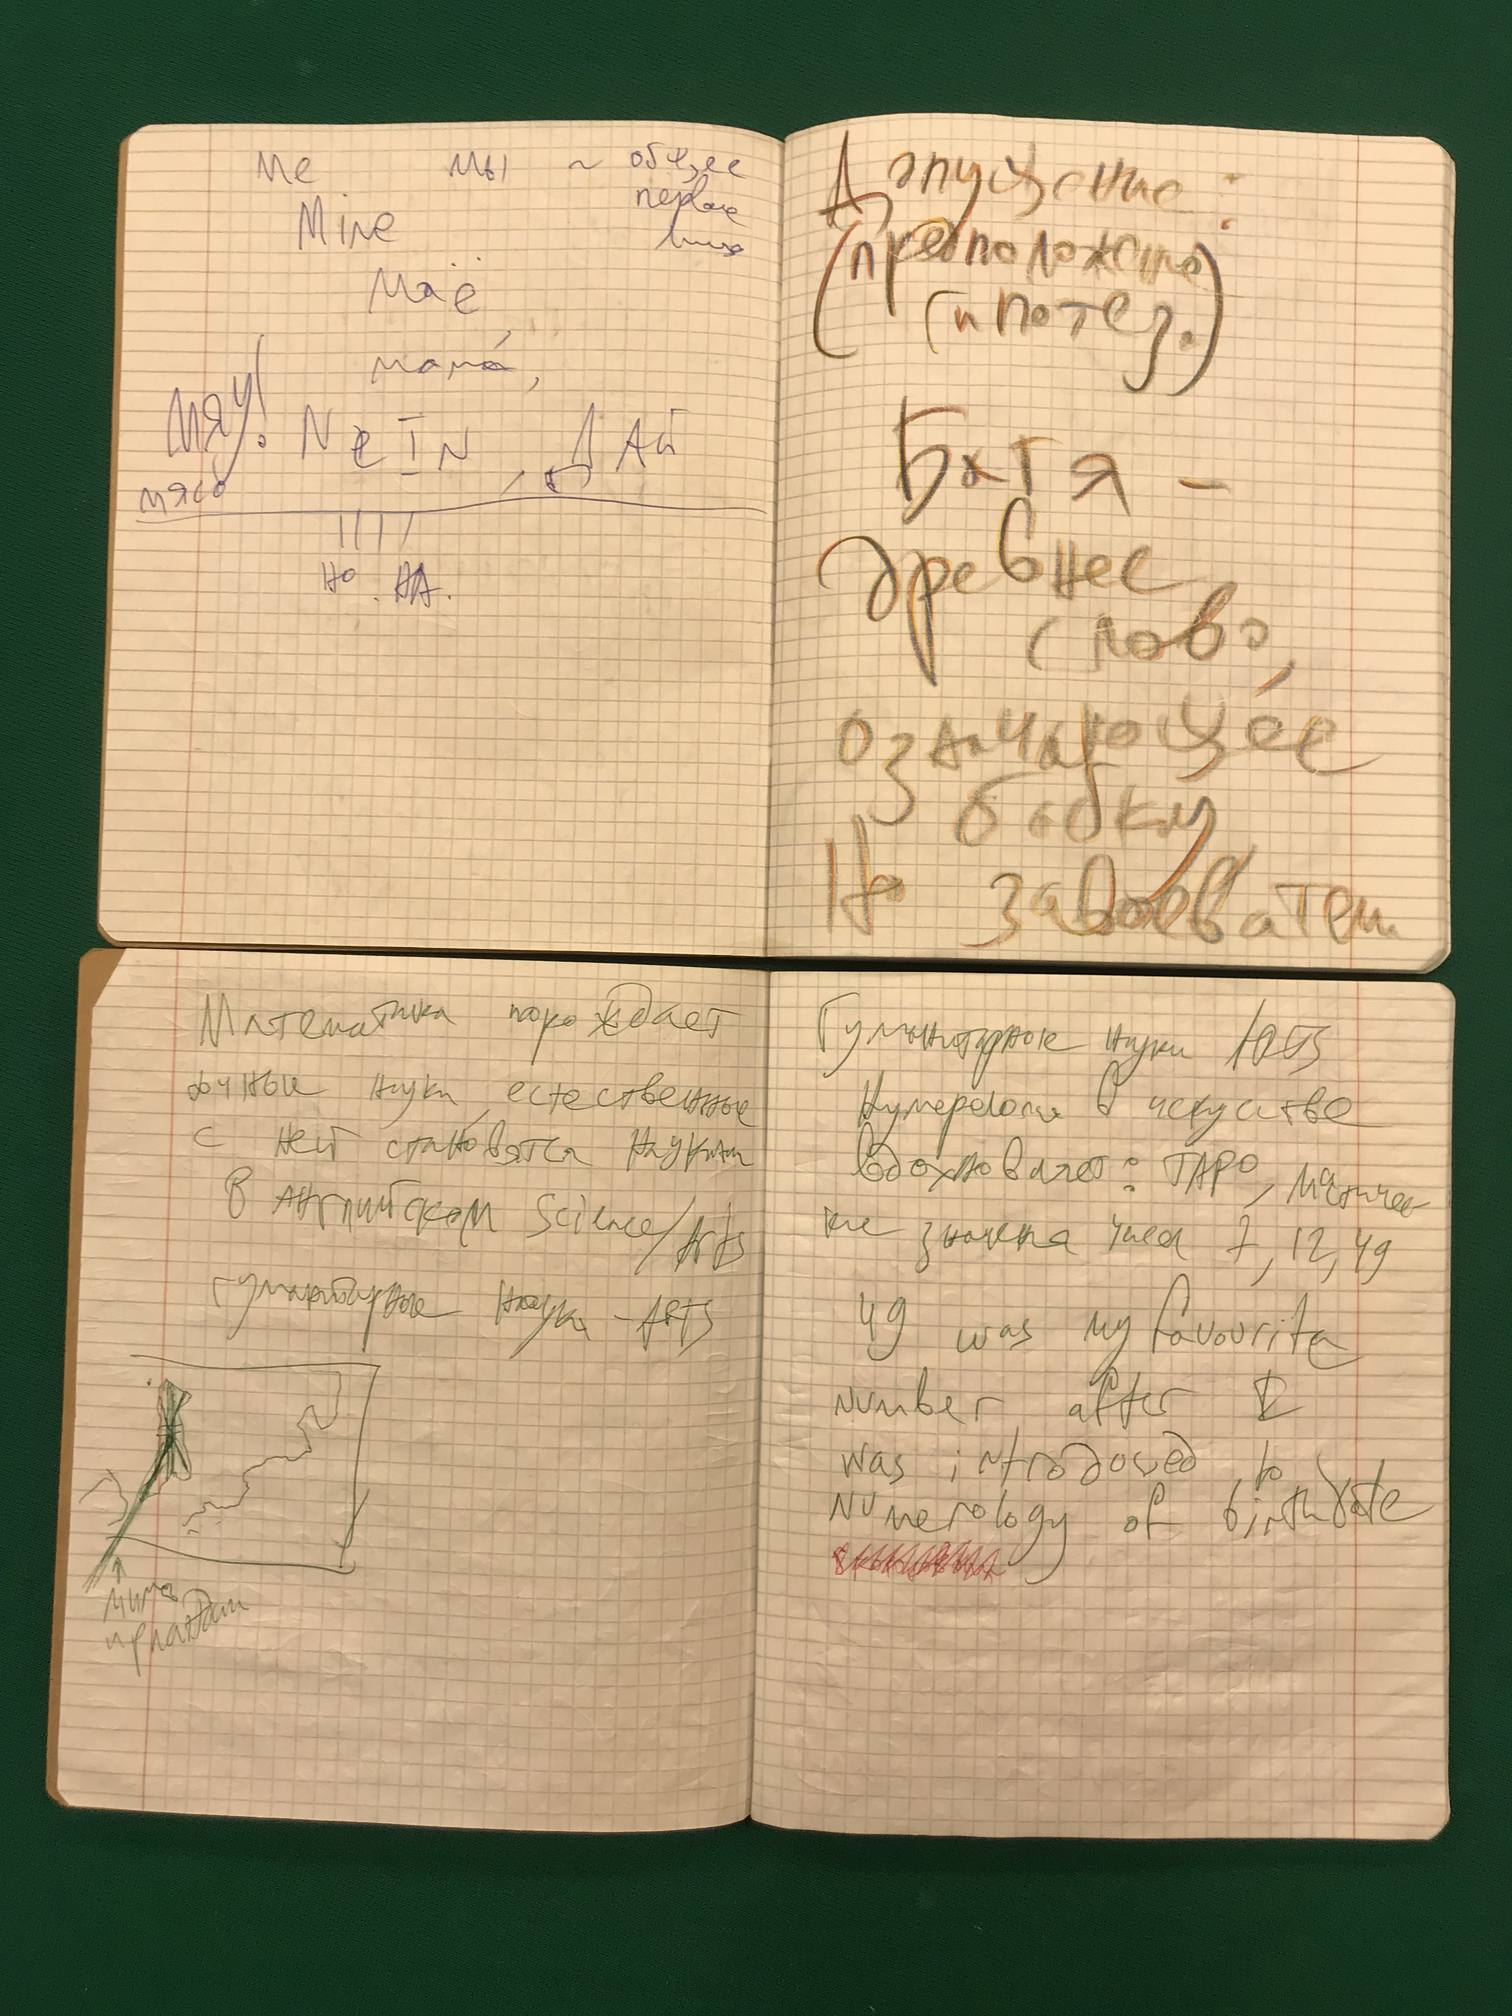 Me мы ~ общее
первое
лицо
Mine
Моё
мама,
МЯУ! NeIN, ДАй
мясо
но. НА.
Допущение:
(предположение
гипотез.)
Батя -
древнее
слово,
означающее
бабку
Но завоеватели
Математика порождает
науки, естественные
с ней становятся науками
В Английском Science/Arts
гуманитарные науки - ARTS
Гуманитарные науки /ARTS
Нумерология в искусстве
вдохновляет: ТАРО, магичес
кие значения чисел 7, 12, 49
49 was my favourite
number after I
was introduced to
Numerology of birthdate